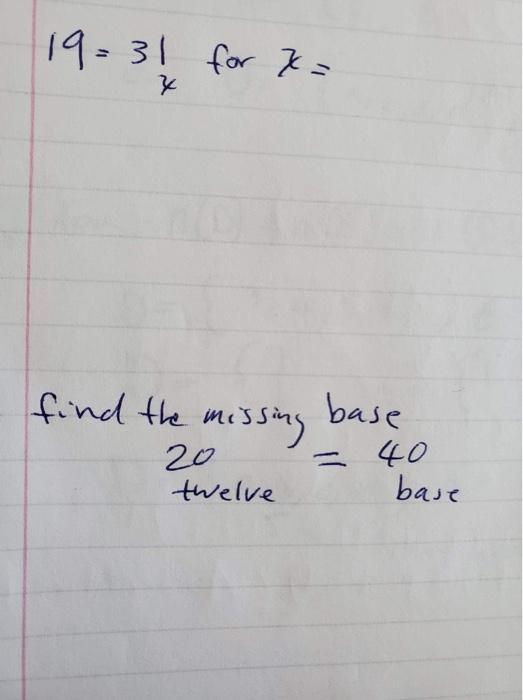 19 = 31 for x =
x
find the missing base
20 = 40
twelve base